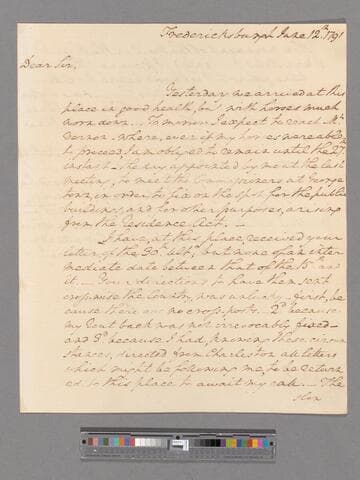 Fredericksburgh June 12th 1791
Dear Sir,
Yesterday we arrived at this
place in good health, but with horses much
worn down. Tomorrow I expect to reach Mt
Vernon where, even if my horses were able
to proceed, I am obliged to remain until the 27th
instant the day appointed by me at the last
meeting, to meet the Commissioners at George
town, in order to fix on the spot for the public
buildings, and for other purposes, arising
from the Residence Act. —
I have, at this place, received your
letter of the 30th ulto, but none of an inter
mediate date between that of the 15th and
it. — Your directions to have them sent
cross-wise the Country, was unlucky — first, be
cause there are no cross-posts. — 2d because
my rout back was not irrevocably fixed —
and 3d because I had, knowing these circum
stances, directed from Charleston all letters
which might be following me, to be return
ed to this place to await my call. — The
slow